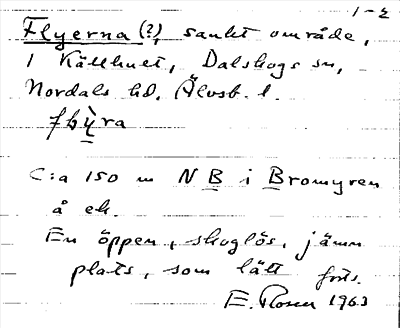 1-2
Flyerna (?), sankt område,
i Källhult, Dalskogs sn,
Nordals hd. Älvsb. l.
C:a 150 m N B i Bromyren
å ek.
En öppen, skoglös, jämn
plats, som lätt frts.
E. Rosen 1963